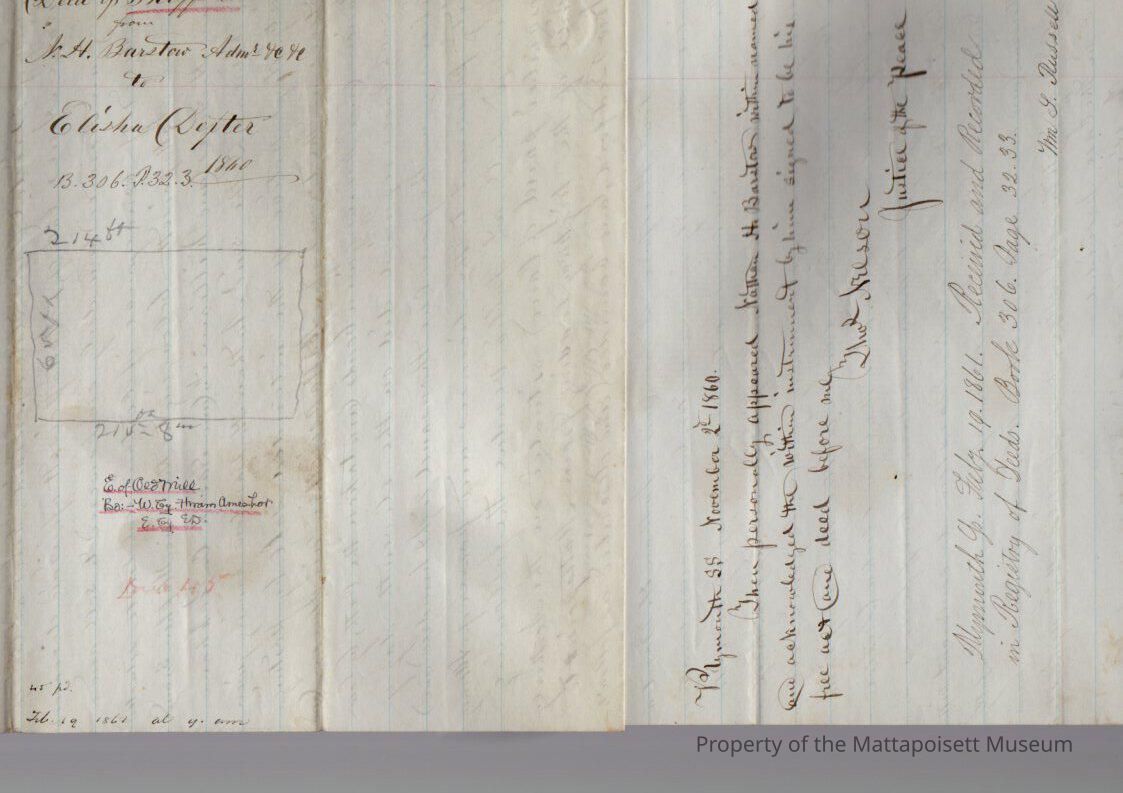 from
N. H. Barstow Admr &c &c
to
Elisha Dexter
B. 306. P. 32.3. 1860
214 ft
E. of Old Mill
Bo:- W. by Hiram Ames Lot
E. by E.D.
45 pd.
Feb. 19 1861 at 9. am
Plymouth SS November 2d 1860.
Then personally appeared Nathan H. Barstow within named
and acknowledged the within instrument by him signed to be his
free act and deed before me,
Thos Nelson
Justice of the Peace
Plymouth Ss. Feby 19. 1861. Received and Recorded
in Registry of Deeds. Book 306. Page 32.33.
Wm S. Russell
Property of the Mattapoisett Museum